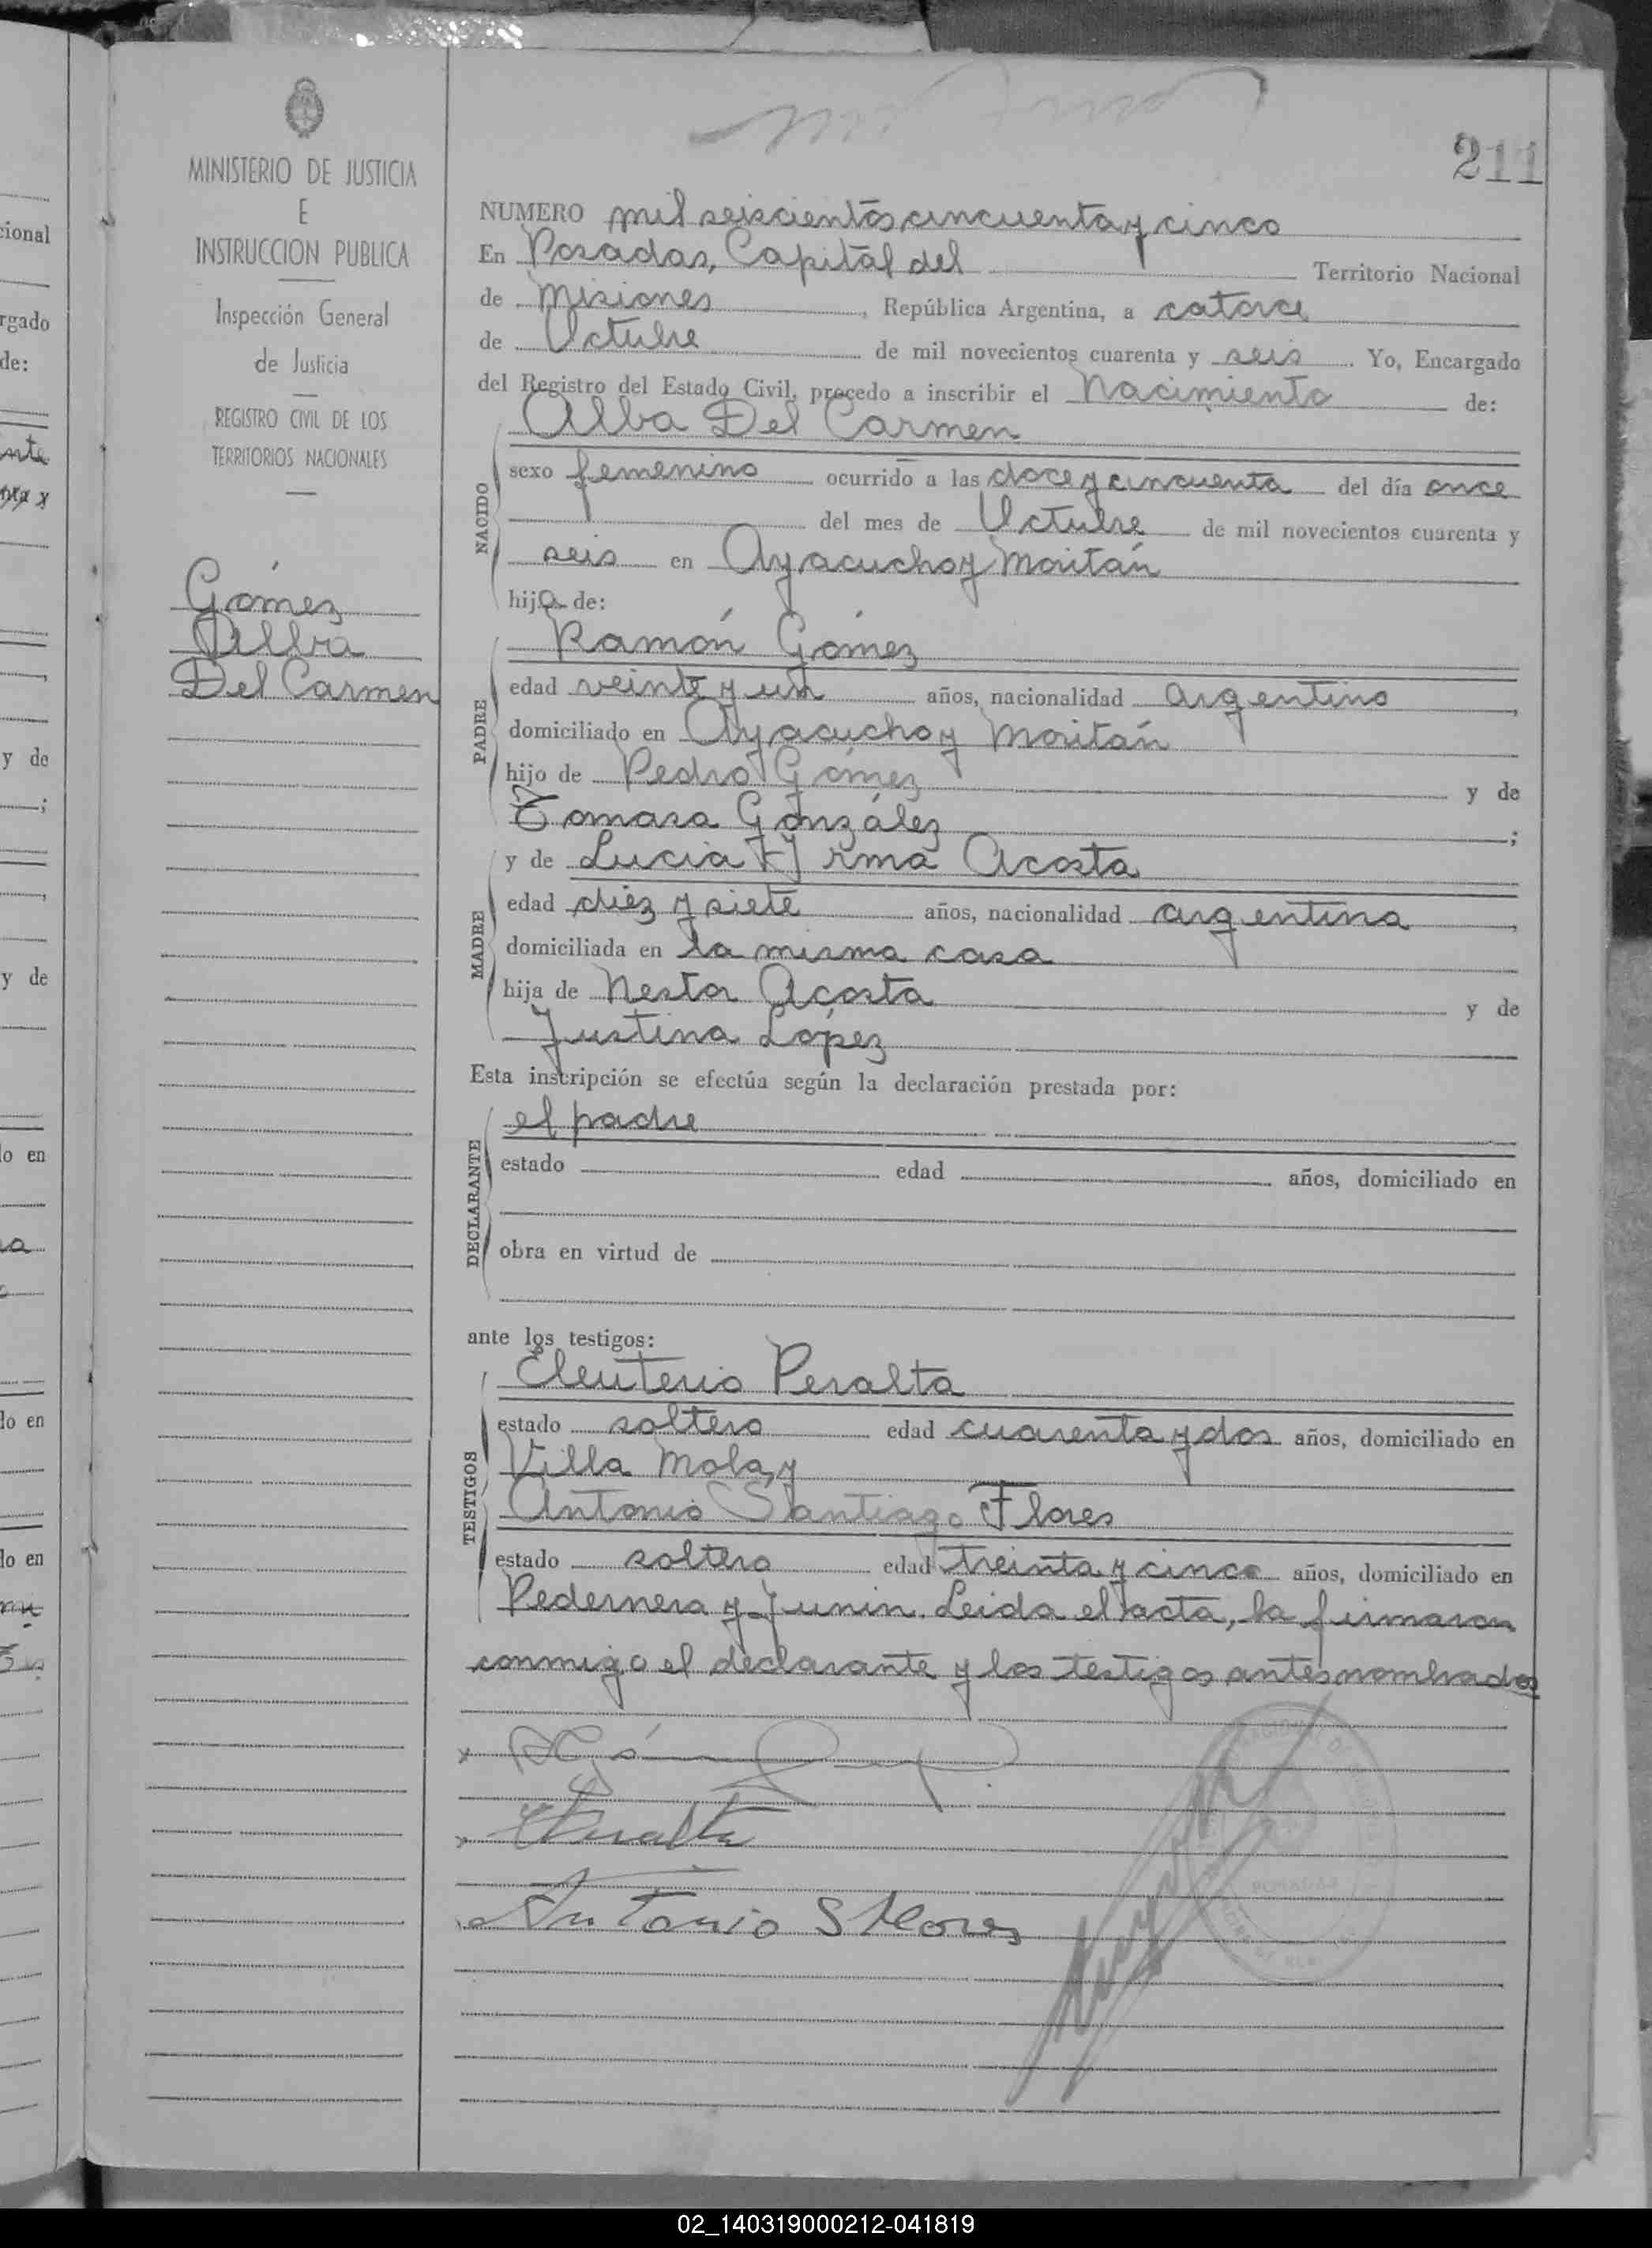 211
MINISTERIO DE JUSTICIA
E
INSTRUCCION PUBLICA
Inspección General
de Justicia
REGISTRO CIVIL DE LOS
TERRITORIOS NACIONALES
Gómez
Alba
Del Carmen
NUMERO mil seiscientos cincuenta y cinco
En Posadas, Capital del Territorio Nacional
de Misiones, República Argentina, a catorce
de Octubre de mil novecientos cuarenta y seis. Yo, Encargado
del Registro del Estado Civil, procedo a inscribir el Nacimiento de:
Alba Del Carmen
NACIDO
sexo femenino ocurrido a las doce y cincuenta del día once
del mes de Octubre de mil novecientos cuarenta y
seis en Ayacucho y Moritán
hija de:
Ramón Gómez
PADRE
edad veinte y un años, nacionalidad argentino,
domiciliado en Ayacucho y Moritán
hijo de Pedro Gómez y de
Tomasa González;
y de Lucia Irma Acosta
MADRE
edad diéz y siete años, nacionalidad argentina,
domiciliada en la misma casa
hija de Nestor Acosta y de
Justina López
Esta inscripción se efectúa según la declaración prestada por:
el padre
DECLARANTE
estado edad años, domiciliado en
obra en virtud de
ante los testigos:
Eleuterio Peralta
TESTIGOS
estado soltero edad cuarenta y dos años, domiciliado en
Villa Mola, y
Antonio Santiago Flores
estado soltero edad treinta y cinco años, domiciliado en
Pedernera y Junin. Leida el acta, la firmaron
conmigo el declarante y los testigos antes nombrados
Antonio S Flores
cional
rgado
de:
y de
;
y de
lo en
lo en
lo en
02_140319000212-041819